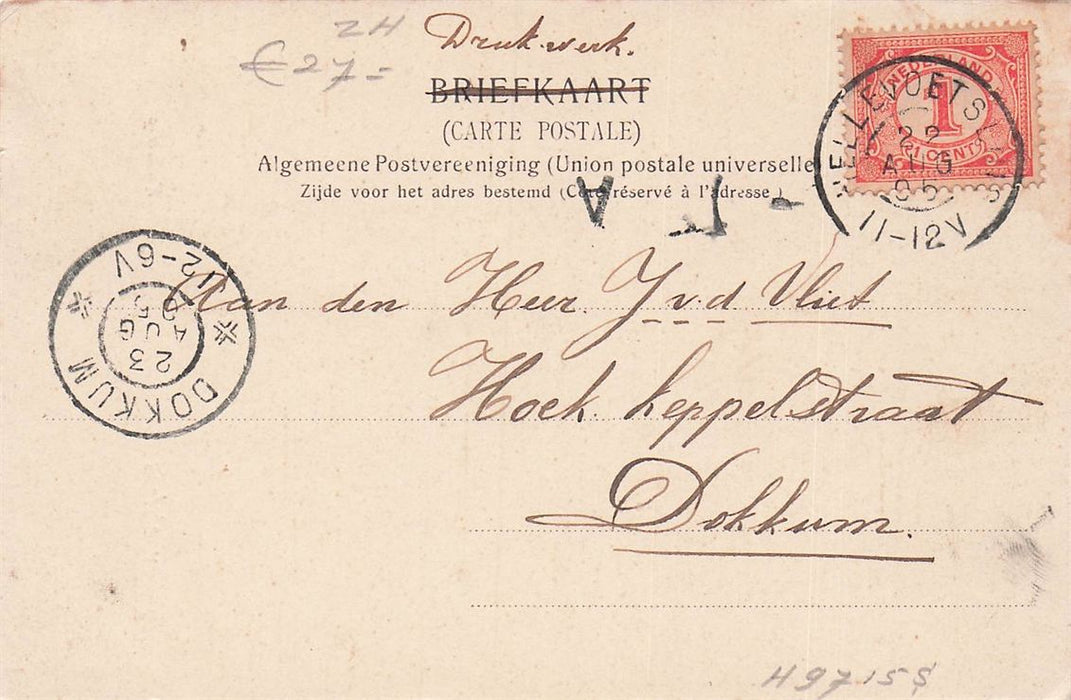 ZH
€ 27,-
Drukwerk.
BRIEFKAART
(CARTE POSTALE)
Algemeene Postvereeniging (Union postale universelle)
Zijde voor het adres bestemd (Côté réservé à l'adresse.)
NEDERLAND
1
1 CENT
HELLEVOETSLUIS
22
AUG
05
11-12V
A
DOKKUM
23
AUG
05
12-6V
Aan den Heer J. v. d. Vliet
Hoek Keppelstraat
Dokkum.
H9715$